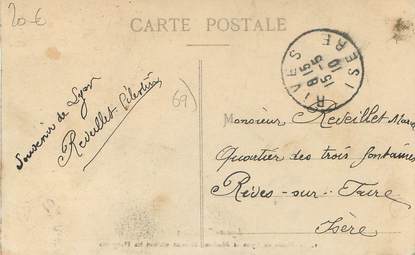 20€
CARTE POSTALE
RIVES
ISERE
Souvenir de Lyon
Reveillet Célestin
69
Monsieur Reveillet
Quartier des trois fontaines
Rives-sur-Fure
Isère